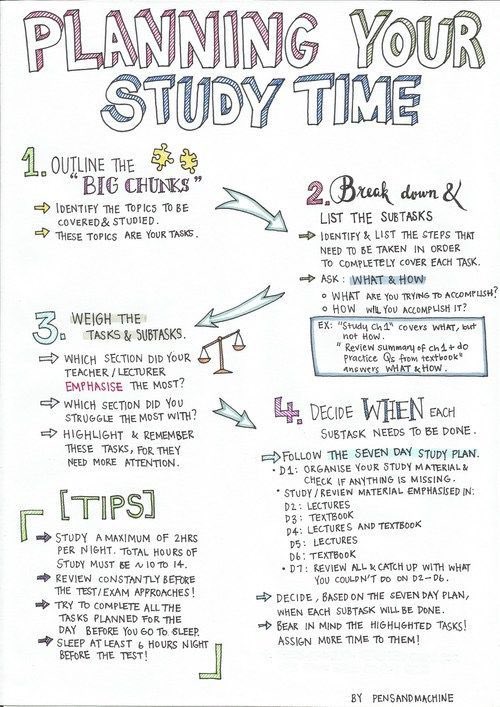 PLANNING YOUR
STUDY TIME
1. OUTLINE THE
"BIG CHUNKS"
IDENTIFY THE TOPICS TO BE
COVERED & STUDIED.
THESE TOPICS ARE YOUR TASKS.
2. Break down &
LIST THE SUBTASKS
IDENTIFY & LIST THE STEPS THAT
NEED TO BE TAKEN IN ORDER
TO COMPLETELY COVER EACH TASK.
ASK: WHAT & HOW
WHAT ARE YOU TRYING TO ACCOMPLISH?
HOW WILL YOU ACCOMPLISH IT?
EX: "Study Ch1" covers WHAT, but
not HOW.
"Review summary of ch1 + do
Practice Qs from textbook"
answers WHAT & HOW.
3. WEIGH THE
TASKS & SUBTASKS.
WHICH SECTION DID YOUR
TEACHER/LECTURER
EMPHASISE THE MOST?
WHICH SECTION DID YOU
STRUGGLE THE MOST WITH?
HIGHLIGHT & REMEMBER
THESE TASKS, FOR THEY
NEED MORE ATTENTION.
4. DECIDE WHEN EACH
SUBTASK NEEDS TO BE DONE.
FOLLOW THE SEVEN DAY STUDY PLAN.
• D1: ORGANISE YOUR STUDY MATERIAL &
CHECK IF ANYTHING IS MISSING.
• STUDY/REVIEW MATERIAL EMPHASISED IN:
D2: LECTURES
D3: TEXTBOOK
D4: LECTURES AND TEXTBOOK
D5: LECTURES
D6: TEXTBOOK
• D7: REVIEW ALL & CATCH UP WITH WHAT
YOU COULDN'T DO ON D2-D6.
DECIDE, BASED ON THE SEVEN DAY PLAN,
WHEN EACH SUBTASK WILL BE DONE.
BEAR IN MIND THE HIGHLIGHTED TASKS!
ASSIGN MORE TIME TO THEM!
[TIPS]
STUDY A MAXIMUM OF 2HRS
PER NIGHT. TOTAL HOURS OF
STUDY MUST BE ~10 TO 14.
REVIEW CONSTANTLY BEFORE
THE TEST/EXAM APPROACHES!
TRY TO COMPLETE ALL THE
TASKS PLANNED FOR THE
DAY BEFORE YOU GO TO SLEEP.
SLEEP AT LEAST 6 HOURS NIGHT
BEFORE THE TEST!
BY PENSANDMACHINE